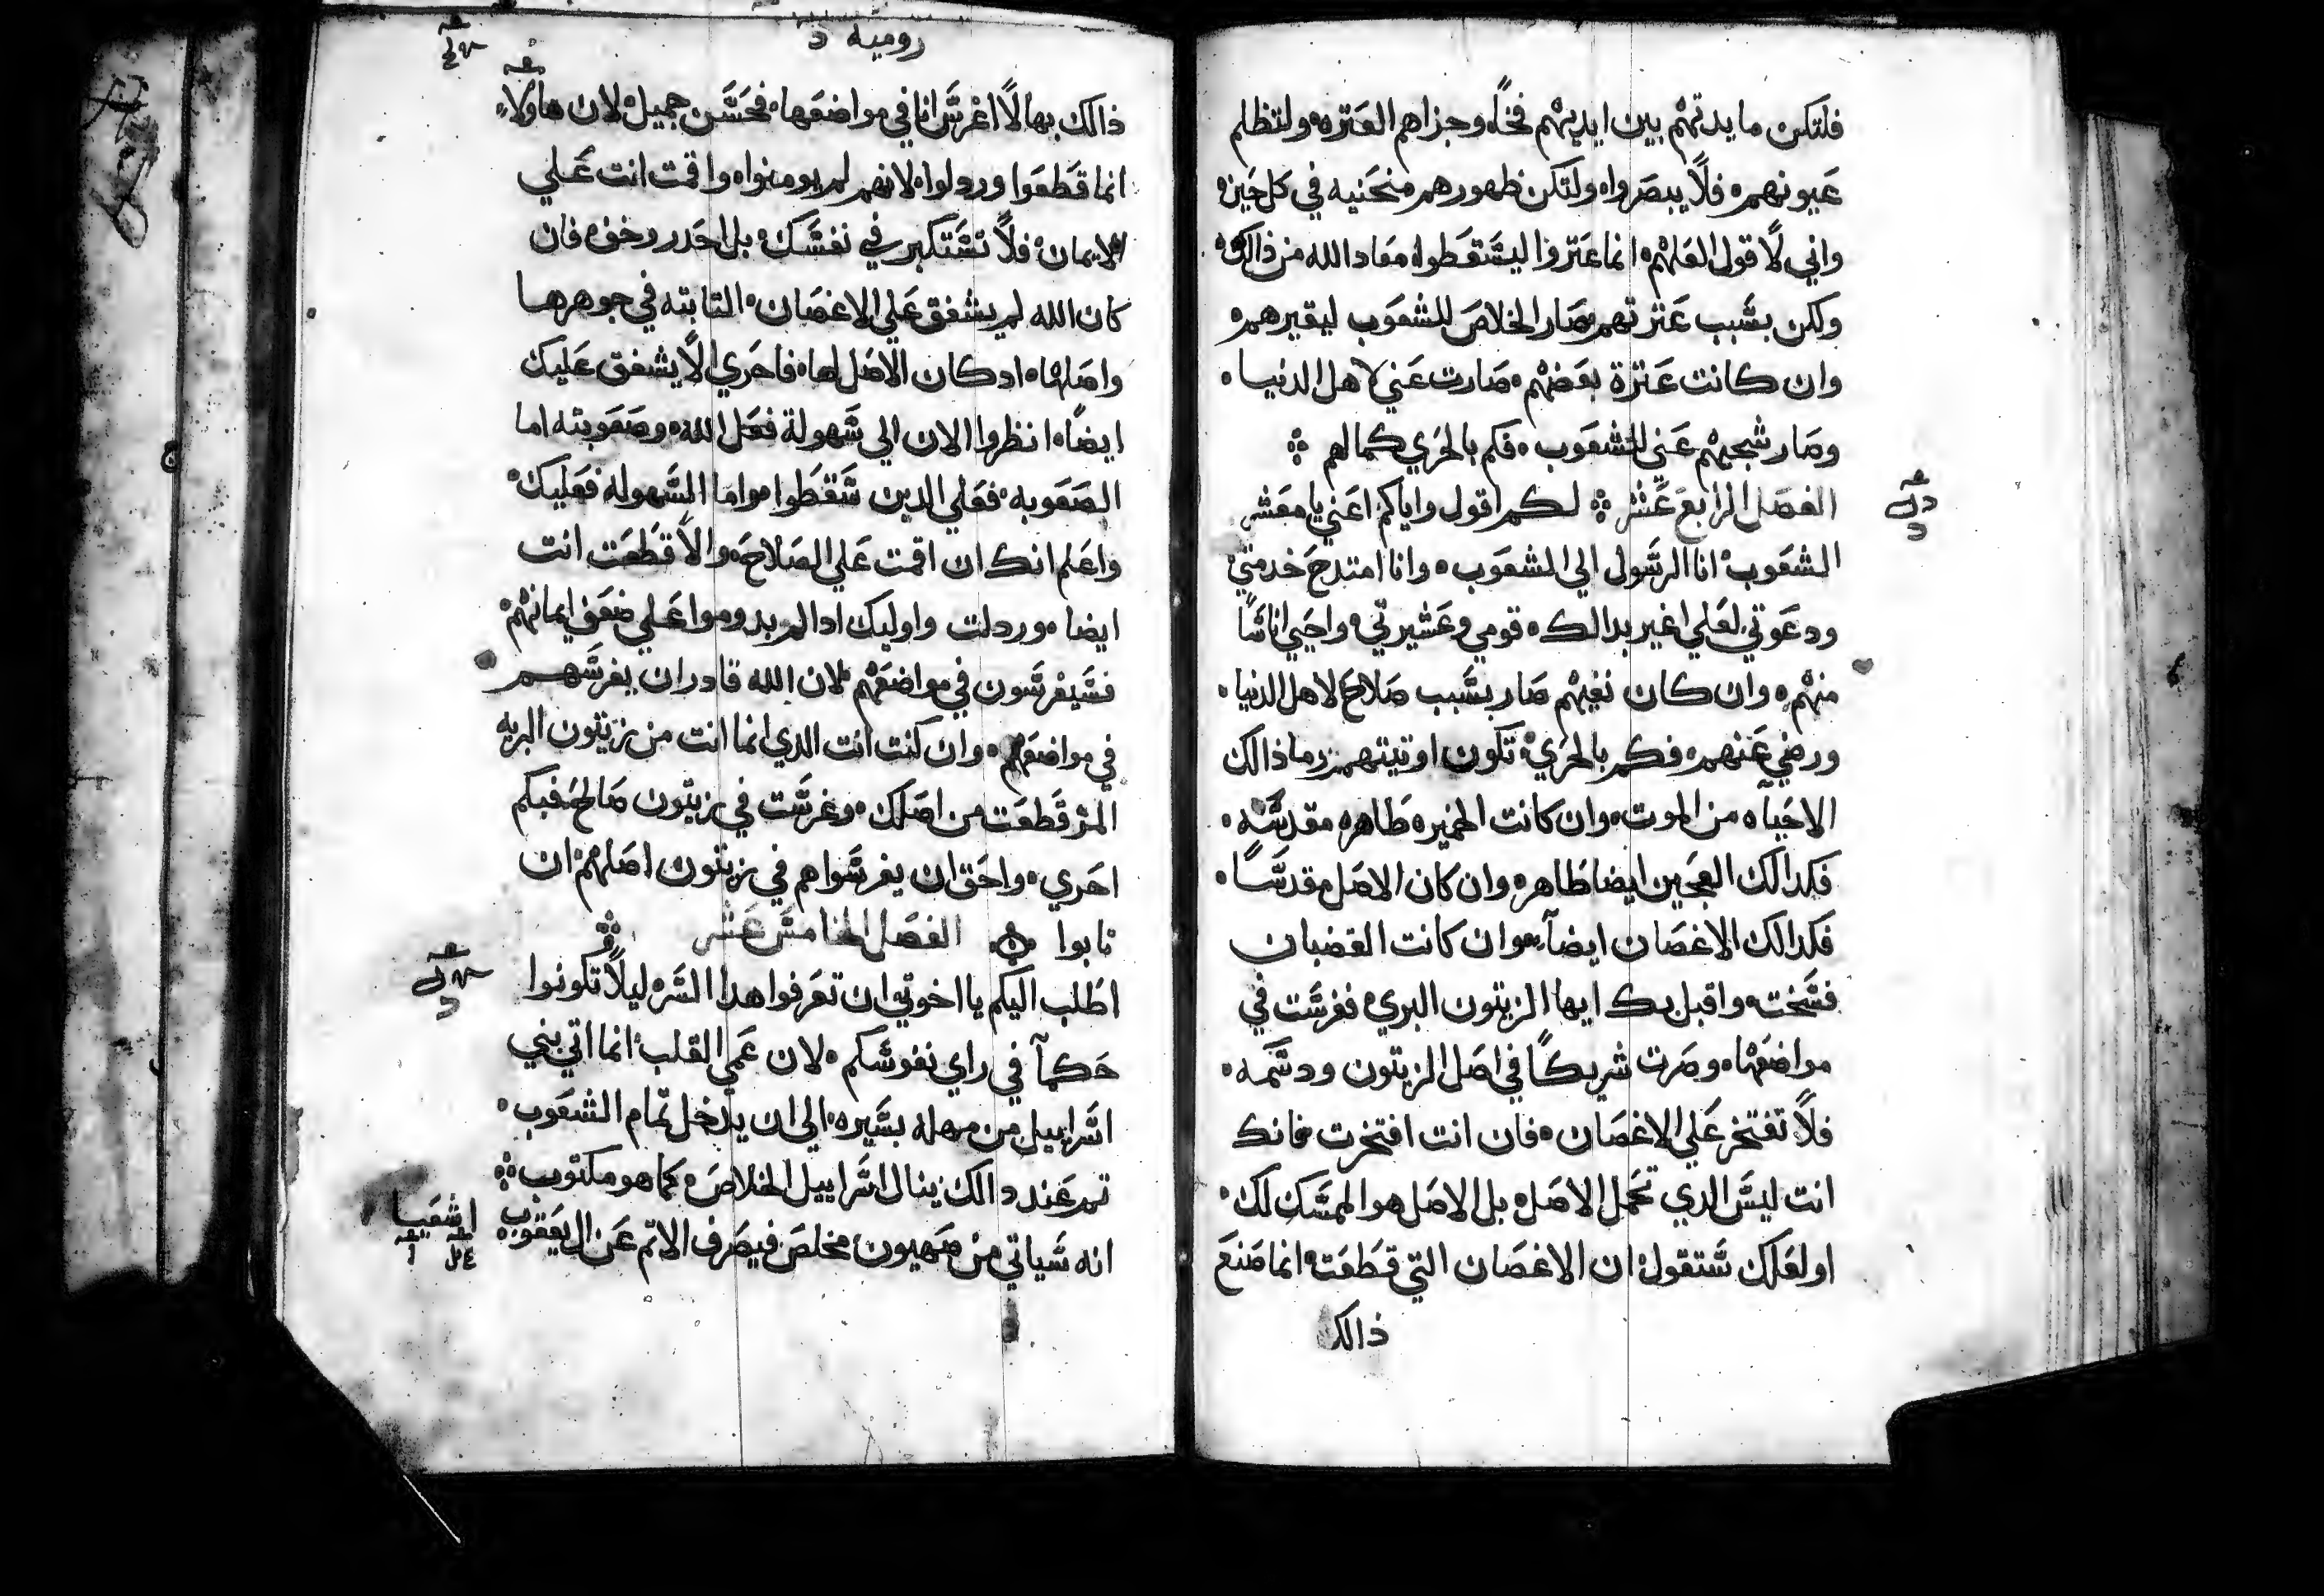 فلتكن مايدتهم بين ايديهم فخا وجزاهم العتره ولتظلم
عيونهم فلا يبصروا ولتكن ظهورهم منحنيه في كل حين
واني لاقول لعلهم انما عتروا ليسقطوا معاد الله من ذالك
ولكن بسبب عترتهم صار الخلاص للشعوب ليغيرهم
وان كانت عترة بعضهم صارت غني لاهل الدنيا
وصار شجبهم غني للشعوب فكم بالحري كمالهم
الفصل الرابع عشر لكم اقول واياكم اعني يا معشر
الشعوب انا الرسول الي الشعوب وانا امتدح خدمتي
ودعوتي لعلي اغير بدالك قومي وعشيرتي واحيي اناسا
منهم وان كان نفيهم صار بسبب صلاح لاهل الدنيا
ورضي عنهم فكم بالحري تكون اوتيتهم وما ذالك
الاحياه من الموت وان كانت الخميره طاهره مقدسه
فكدالك العجين ايضا طاهره وان كان الاصل مقدسا
فكدالك الاغصان ايضا وان كانت الغضبان
فسخت واقبل بك ايها الزيتون البري فغرست في
مواضعها وصرت شريكا في اصل الزيتون ودسمه
فلا تفتخر علي الاغصان فان انت افتخرت فانك
انت ليس الدي تحمل الاصل بل الاصل هو الممسك لك
او لعلك ستقول ان الاغصان التي قطعت انما صنع
ذالك
روميه د
ذالك بها لا اغرس انا في مواضعها فحسن جميل لان هاولاء
انما قطعوا وردلوا لانهم لم يومنوا واقمت انت علي
الايمان فلا تستكبر في نفسك بل احدر وخف فان
كان الله لم يشفق علي الاغصان التابته في جوهرها
واصلها اد كان الاصل لها فاحري لا يشفق عليك
ايضا انظروا الان الي سهولة فعل الله وصعوبته اما
الصعوبه فعلي الدين سقطوا واما السهوله فعليك
واعلم انك ان اقمت علي الصلاح والا قطعت انت
ايضا وردلت واوليك ادا لم يدوموا علي ضعف ايمانهم
فسيغرسون في مواضعهم لان الله قادر ان يغرسهم
في مواضعهم وان كنت انت الدي انما انت من زيتون البريه
المر قطعت من اصلك وغرست في زيتون صالح فبكم
احري واحق ان يغرسوا هم في زيتون اصلهم ان
تابوا الفصل الخامس عشر
اطلب اليكم يا اخوتي ان تعرفوا هدا السر ليلا تكونوا
حكما في راي نفوسكم لان عمي القلب انما اتي بني
اسراييل من مهله يسيره الي ان يدخل تمام الشعوب
تم عند دالك ينال اسراييل الخلاص كما هو مكتوب
انه سياتي من صهيون مخلص فيصرف الاتم عن ال يعقوب
اشعيا